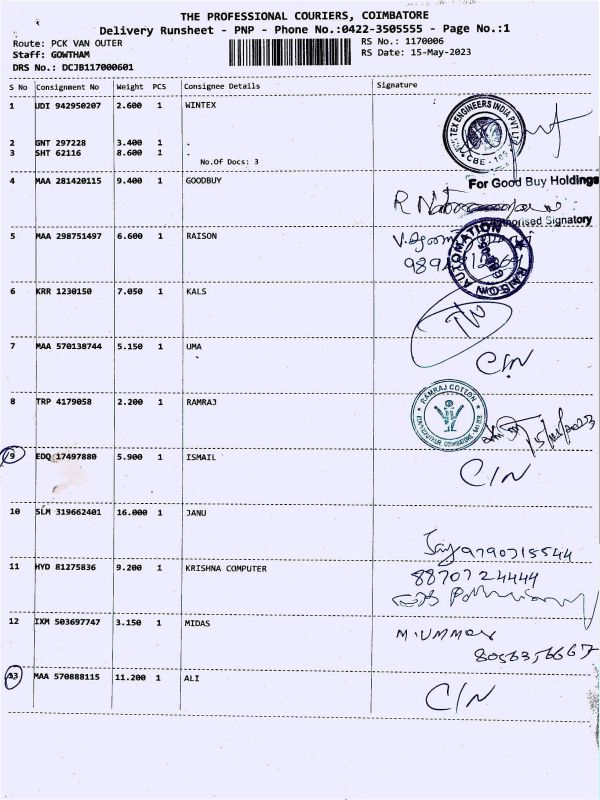 THE PROFESSIONAL COURIERS, COIMBATORE
Delivery Runsheet - PNP - Phone No.:0422-3505555 - Page No.:1
Route: PCK VAN OUTER RS No.: 1170006
Staff: GOWTHAM RS Date: 15-May-2023
DRS No.: DCJB117000601
S No Consignment No Weight PCS Consignee Details Signature
1 UDI 942950207 2.600 1 WINTEX
TEX ENGINEERS INDIA PVT LTD
CBE - 105
2 GNT 297228 3.400 1 .
3 SHT 62116 8.600 1 .
No.Of Docs: 3
4 MAA 281420115 9.400 1 GOODBUY
For Good Buy Holdings
Authorised Signatory
5 MAA 298751497 6.600 1 RAISON
RAISON AUTOMATION
6 KRR 1230150 7.050 1 KALS
7 MAA 570138744 5.150 1 UMA
C/N
8 TRP 4179058 2.200 1 RAMRAJ
RAMRAJ COTTON
9 EDQ 17497880 5.900 1 ISMAIL
C/N
10 SLM 319662401 16.000 1 JANU
11 HYD 81275836 9.200 1 KRISHNA COMPUTER
8870724444
12 IXM 503697747 3.150 1 MIDAS
M.UMMAR
8056356667
13 MAA 570888115 11.200 1 ALI
C/N